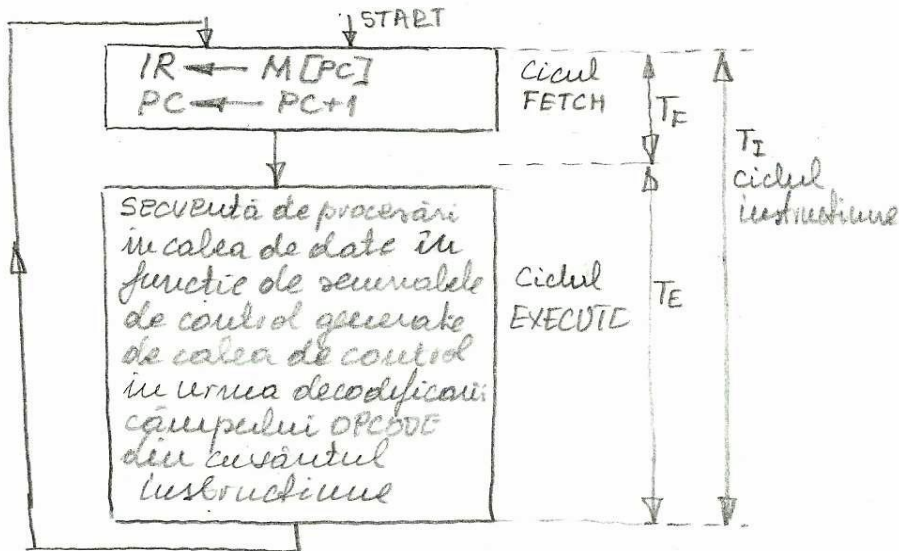 START
IR ← M[PC]
PC ← PC+1
Cicul
FETCH
TF
TI
ciclul
instructiune
SECVENTĂ de procesări
in calea de date în
functie de semnalele
de control generate
de calea de control
in urma decodificarii
câmpului OPCODE
din cuvântul
instructiune
Ciclul
EXECUTE
TE